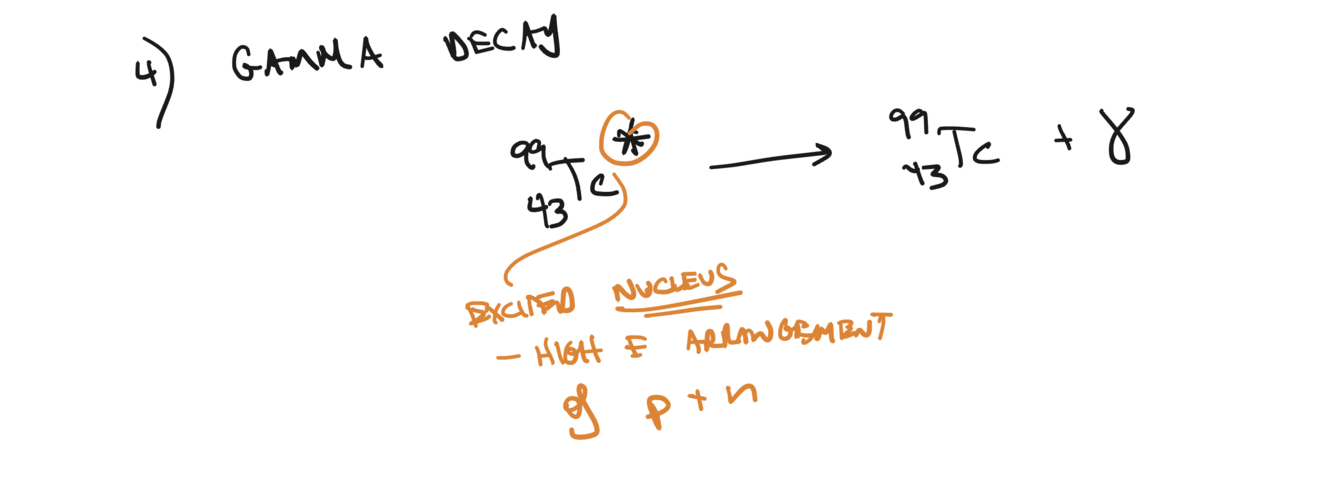 4) GAMMA DECAY
⁹⁹₄₃Tc* → ⁹⁹₄₃Tc + γ
EXCITED NUCLEUS
- HIGH E ARRANGEMENT
of p + n